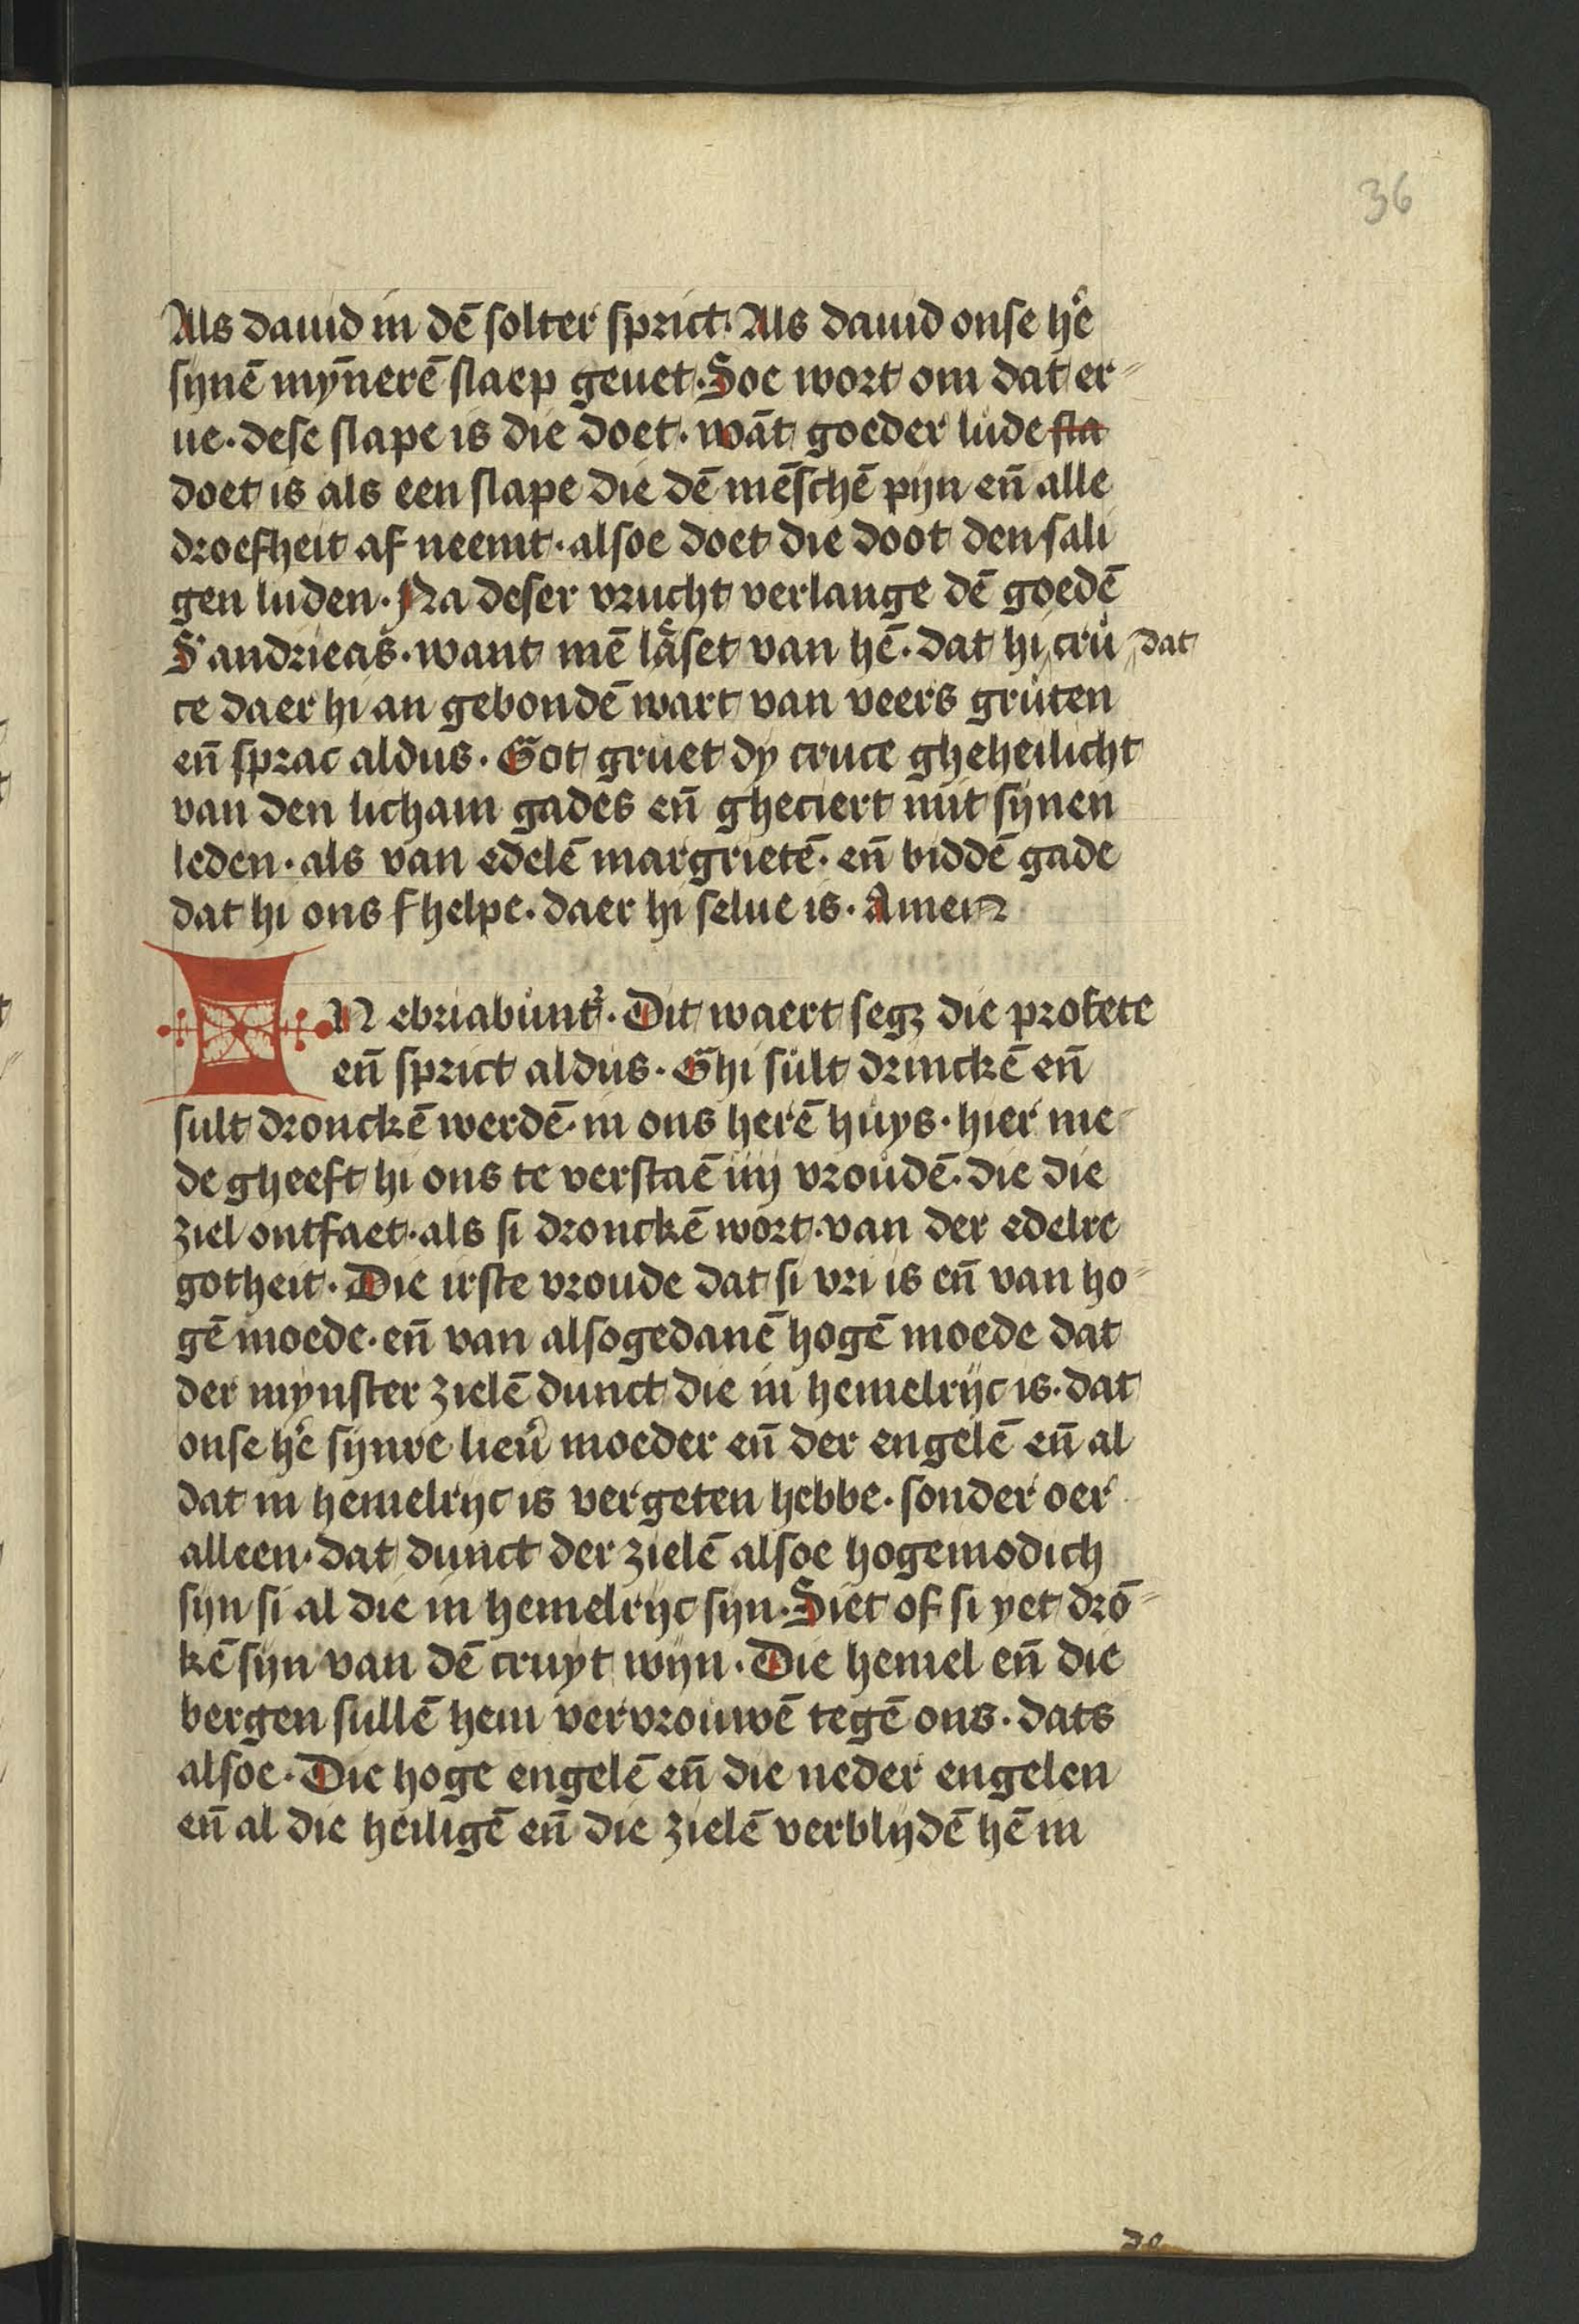 36
Als dauid in dē solter sprict. Als dauid onse hr̄e
synē mȳnerē slaep geuet. Soe wort om dat er-
ue. dese slape is die doet. wāt goeder lude sla
doet is als een slape die dē mēschē pyn en̄ alle
droefheit af neemt. alsoe doet die doot den sali
gen luden. Na deser vrucht verlange dē goedē
S' andrieas. want mē läset van hē. dat hi cru dat
ce daer hi an gebondē wart van veers gruten
en̄ sprac aldus. Got gruet dy cruce gheheilicht
van den licham gades en̄ gheciert mit synen
leden. als van edelē margrietē. en̄ biddē gade
dat hi ons f helpe. daer hi selue is. Amen
IN ebriabunt᷑. Dit waert segꝫ die profete
en̄ sprict aldus. Ghi sult drinckē en̄
sult dronckē werdē. in ons herē huys. hier me
de gheeft hi ons te verstaē iiij vroudē. die die
ziel ontfaet. als si dronckē wort. van der edelre
gotheit. Die irste vroude dat si vri is en̄ van ho-
gē moede. en̄ van alsogedanē hogē moede dat
der mynster zielē dunct die in hemelryc is. dat
onse hr̄e synre lieu᷑ moeder en̄ der engelē en̄ al
dat in hemelryc is vergeten hebbe. sonder oer
alleen. dat dunct der zielē alsoe hogemodich
syn si al die in hemelryc syn. Siet of si yet drō-
kē syn van dē cruyt wyn. Die hemel en̄ die
bergen sullē hem vervrouwē tegē ons. dats
alsoe. Die hoge engelē en̄ die neder engelen
en̄ al die heiligē en̄ die zielē verblydē hē in